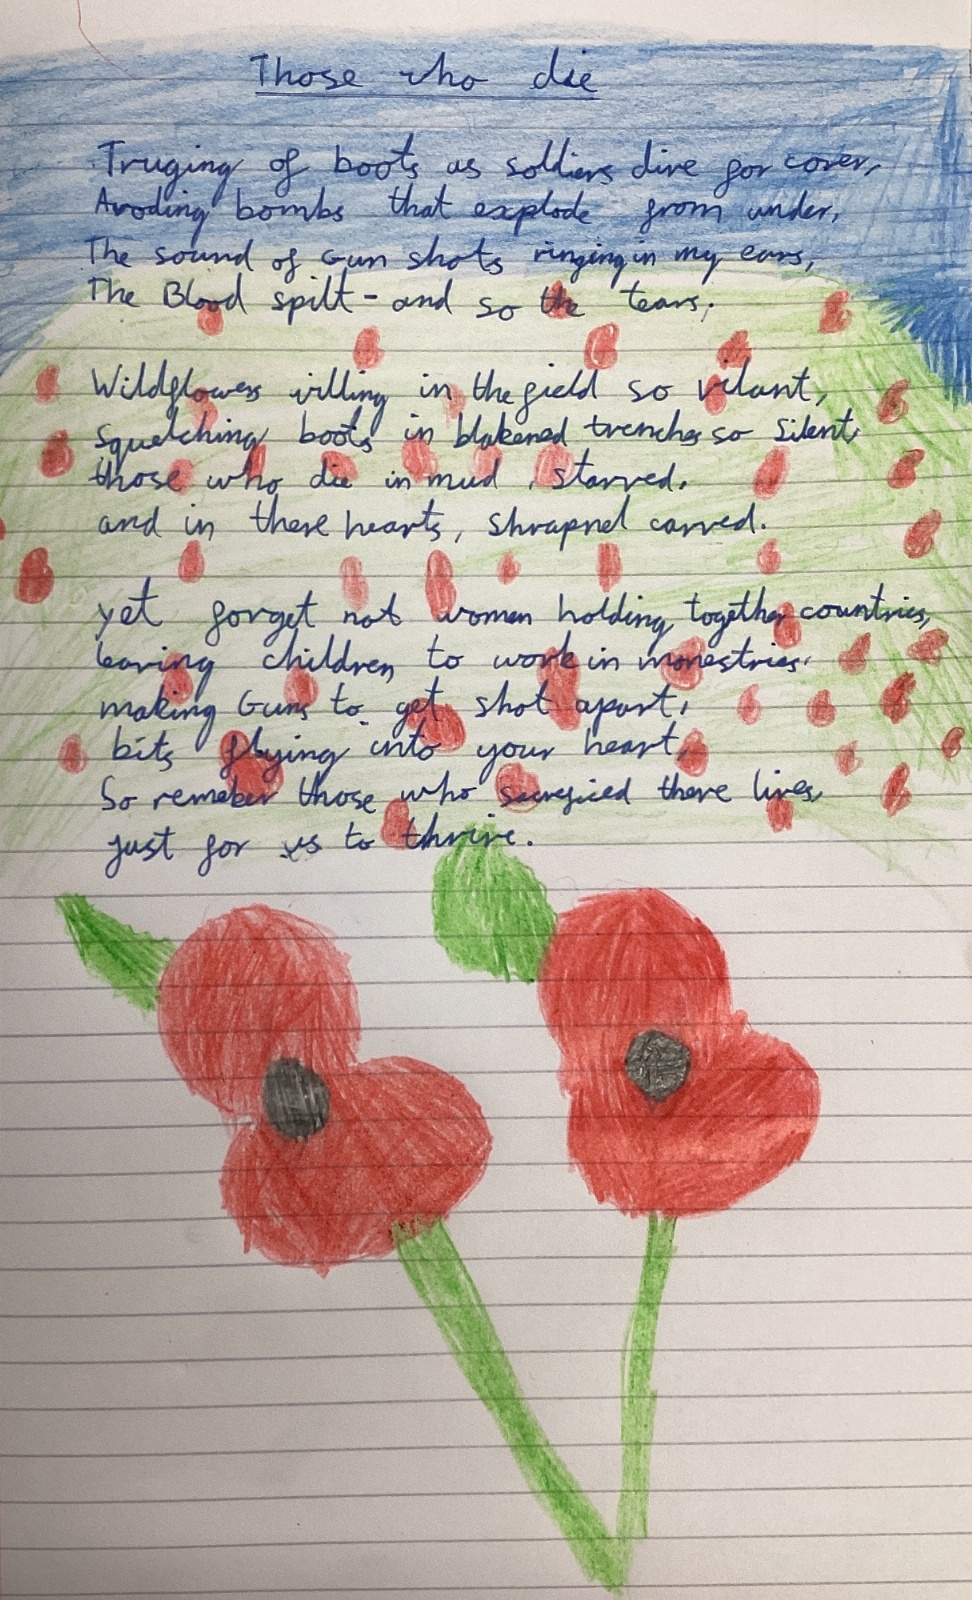 Those who die
Truging of boots as soldiers dive for cover,
Avoding bombs that explode from under,
The sound of Gun shots ringing in my ears,
The Blood spilt - and so the tears;
Wildflowers villing in the field so vilant,
Squelching boots in blakened trenches so Silent,
those who die in mud, starved,
and in there hearts, shrapnel carved.
yet forget not women holding together countries,
leaving children to work in monestries,
making Guns to get shot apart,
bits flying into your heart,
So remeber those who sacrejiced there lives,
just for us to thrive.